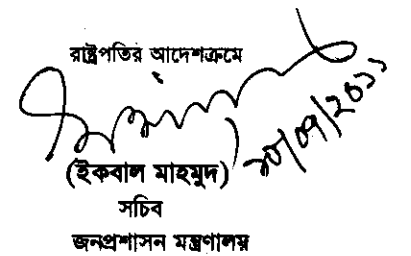 রাষ্ট্রপতির আদেশক্রমে
(ইকবাল মাহমুদ)
সচিব
জনপ্রশাসন মন্ত্রণালয়